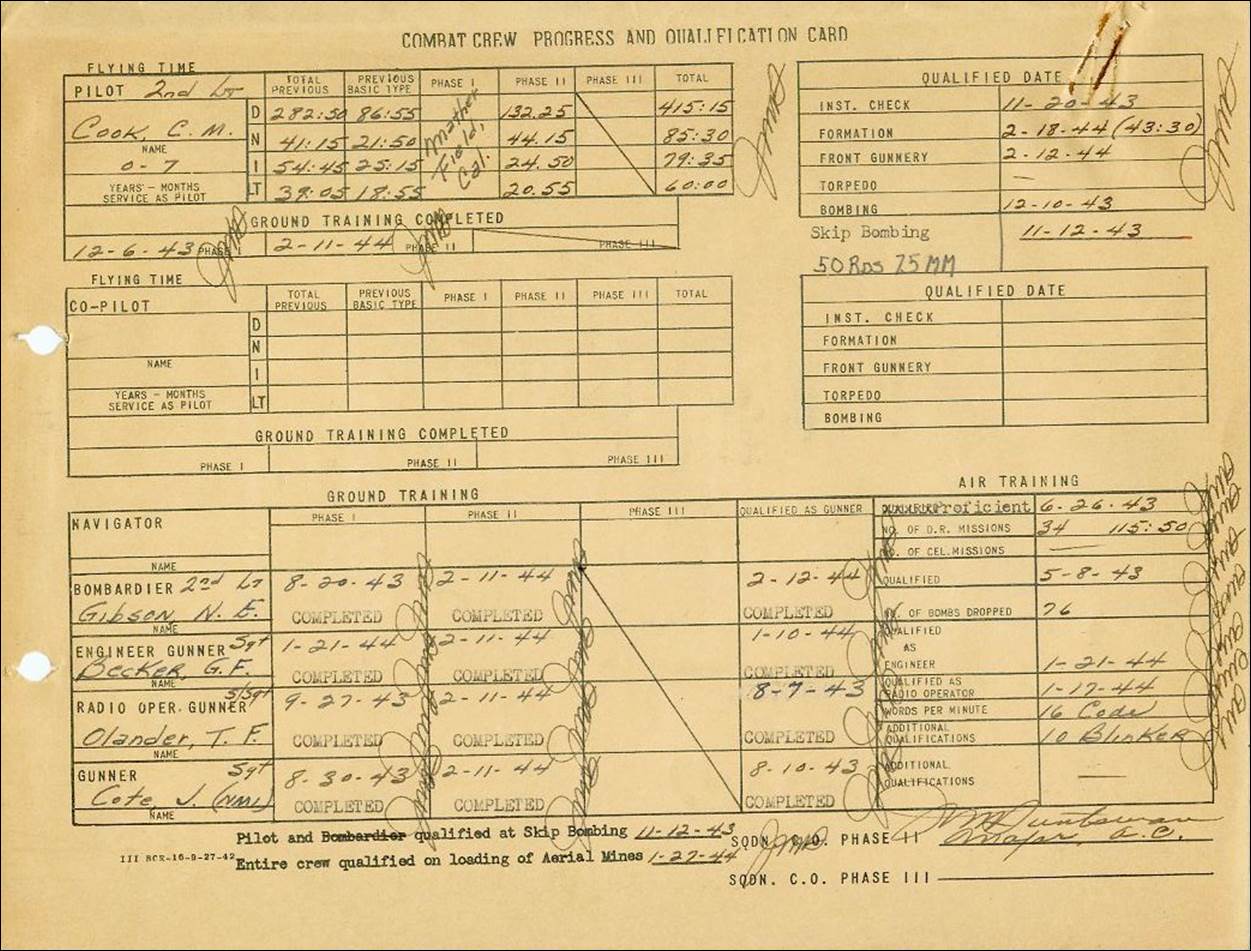 COMBAT CREW PROGRESS AND QUALIFICATION CARD
FLYING TIME
PILOT 2nd Lt TOTAL PREVIOUS PREVIOUS BASIC TYPE PHASE I PHASE II PHASE III TOTAL
D 282:50 86:55 132.25 415:15
Cook, C. M. N 41:15 21:50 44.15 85:30
NAME
0-7 I 54:45 25:15 24.50 79:35
YEARS - MONTHS SERVICE AS PILOT LT 39:05 18:55 20.55 60:00
Mather Field, Cal.
GROUND TRAINING COMPLETED
12-6-43 PHASE I 2-11-44 PHASE II PHASE III
QUALIFIED DATE
INST. CHECK 11-20-43
FORMATION 2-18-44 (43:30)
FRONT GUNNERY 2-12-44
TORPEDO —
BOMBING 12-10-43
Skip Bombing 11-12-43
50 RDS 75MM
FLYING TIME
CO-PILOT TOTAL PREVIOUS PREVIOUS BASIC TYPE PHASE I PHASE II PHASE III TOTAL
D
N
NAME
I
YEARS - MONTHS SERVICE AS PILOT LT
GROUND TRAINING COMPLETED
PHASE I PHASE II PHASE III
QUALIFIED DATE
INST. CHECK
FORMATION
FRONT GUNNERY
TORPEDO
BOMBING
GROUND TRAINING
PHASE I PHASE II PHASE III QUALIFIED AS GUNNER
NAVIGATOR
NAME
BOMBARDIER 2nd Lt 8-20-43 2-11-44 2-12-44
Gibson, N. E. COMPLETED COMPLETED COMPLETED
NAME
ENGINEER GUNNER Sgt 1-21-44 2-11-44 1-10-44
Becker, G. F. COMPLETED COMPLETED COMPLETED
NAME
RADIO OPER. GUNNER S/Sgt 9-27-43 2-11-44 8-7-43
Olander, T. F. COMPLETED COMPLETED COMPLETED
NAME
GUNNER Sgt 8-30-43 2-11-44 8-10-43
Cote, J. (NMI) COMPLETED COMPLETED COMPLETED
NAME
AIR TRAINING
Proficient 6-26-43
NO. OF D.R. MISSIONS 34 115:50
NO. OF CEL. MISSIONS —
QUALIFIED 5-8-43
OF BOMBS DROPPED 76
QUALIFIED AS ENGINEER 1-21-44
QUALIFIED AS RADIO OPERATOR 1-17-44
WORDS PER MINUTE 16 Code
ADDITIONAL QUALIFICATIONS 10 Blinker
ADDITIONAL QUALIFICATIONS —
Pilot and Bombardier qualified at Skip Bombing 11-12-43
III BCR-16-9-27-42 Entire crew qualified on loading of Aerial Mines 1-27-44
SQDN. C.O. PHASE II
Major A.C.
SQDN. C.O. PHASE III